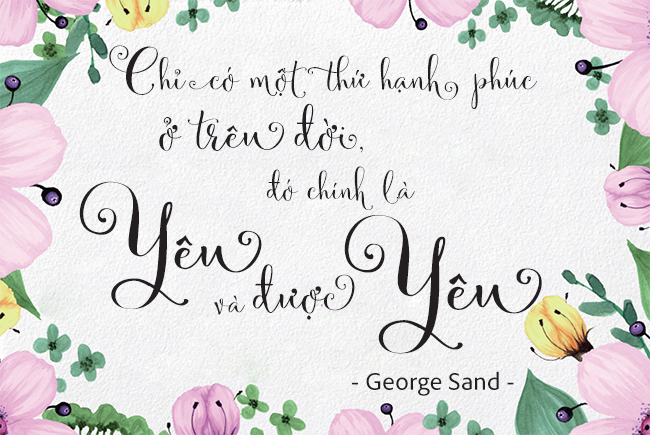 Chỉ có một thứ hạnh phúc
ở trên đời,
đó chính là
Yêu
và được Yêu
- George Sand -